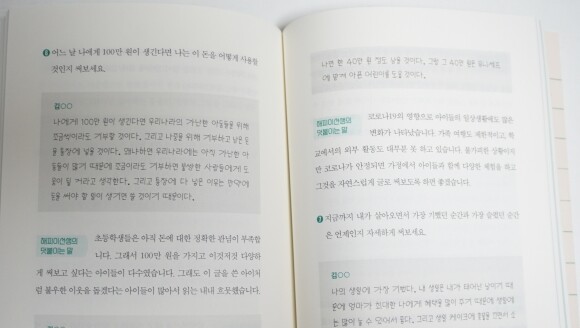 ❻ 어느 날 나에게 100만 원이 생긴다면 나는 이 돈을 어떻게 사용할
것인지 써보세요.
김○○
나에게 100만 원이 생긴다면 우리나라의 가난한 아동들을 위해
조금씩이라도 기부할 것이다. 그리고 나중을 위해 기부하고 남은 돈
을 통장에 넣을 것이다. 왜냐하면 우리나라에는 아직 가난한 아
동들이 많기 때문에 조금이라도 기부하면 불쌍한 사람들에게 도
움이 될 거라고 생각한다. 그리고 통장에 다 넣은 이유는 만약에
돈을 써야 할 일이 생기면 쓸 것이기 때문이다.
해피이선생의
덧붙이는 말
초등학생들은 아직 돈에 대한 정확한 관념이 부족합
니다. 그래서 100만 원을 가지고 이것저것 다양하
게 써보고 싶다는 아이들이 다수였습니다. 그래도 이 글을 쓴 아이처
럼 불우한 이웃을 돕겠다는 아이들이 많아서 읽는 내내 흐뭇했습니다.
나면 한 40만 원 정도 남을 것이다. 그럼 그 40만 원은 유니세프
에 맡겨 아픈 어린이를 도울 것이다.
해피이선생의
덧붙이는 말
코로나19의 영향으로 아이들의 일상생활에도 많은
변화가 나타났습니다. 가족 여행도 제한적이고, 학
교에서의 외부 활동도 대부분 못 하고 있습니다. 불가피한 상황이지
만 코로나가 안정되면 가정에서 아이들과 함께 다양한 체험을 하고
그것을 자연스럽게 글로 써보도록 하면 좋겠습니다.
❼ 지금까지 내가 살아오면서 가장 기뻤던 순간과 가장 슬펐던 순간
은 언제인지 자세하게 써보세요.
김○○
나의 생일에 가장 기뻤다. 내 생일은 내가 태어난 날이기 때
문에 엄마가 최대한 나에게 혜택을 많이 주기 때문에 생일에
는 많이 놀 수 있어서 좋다. 그리고 생일 케이크에 촛불을